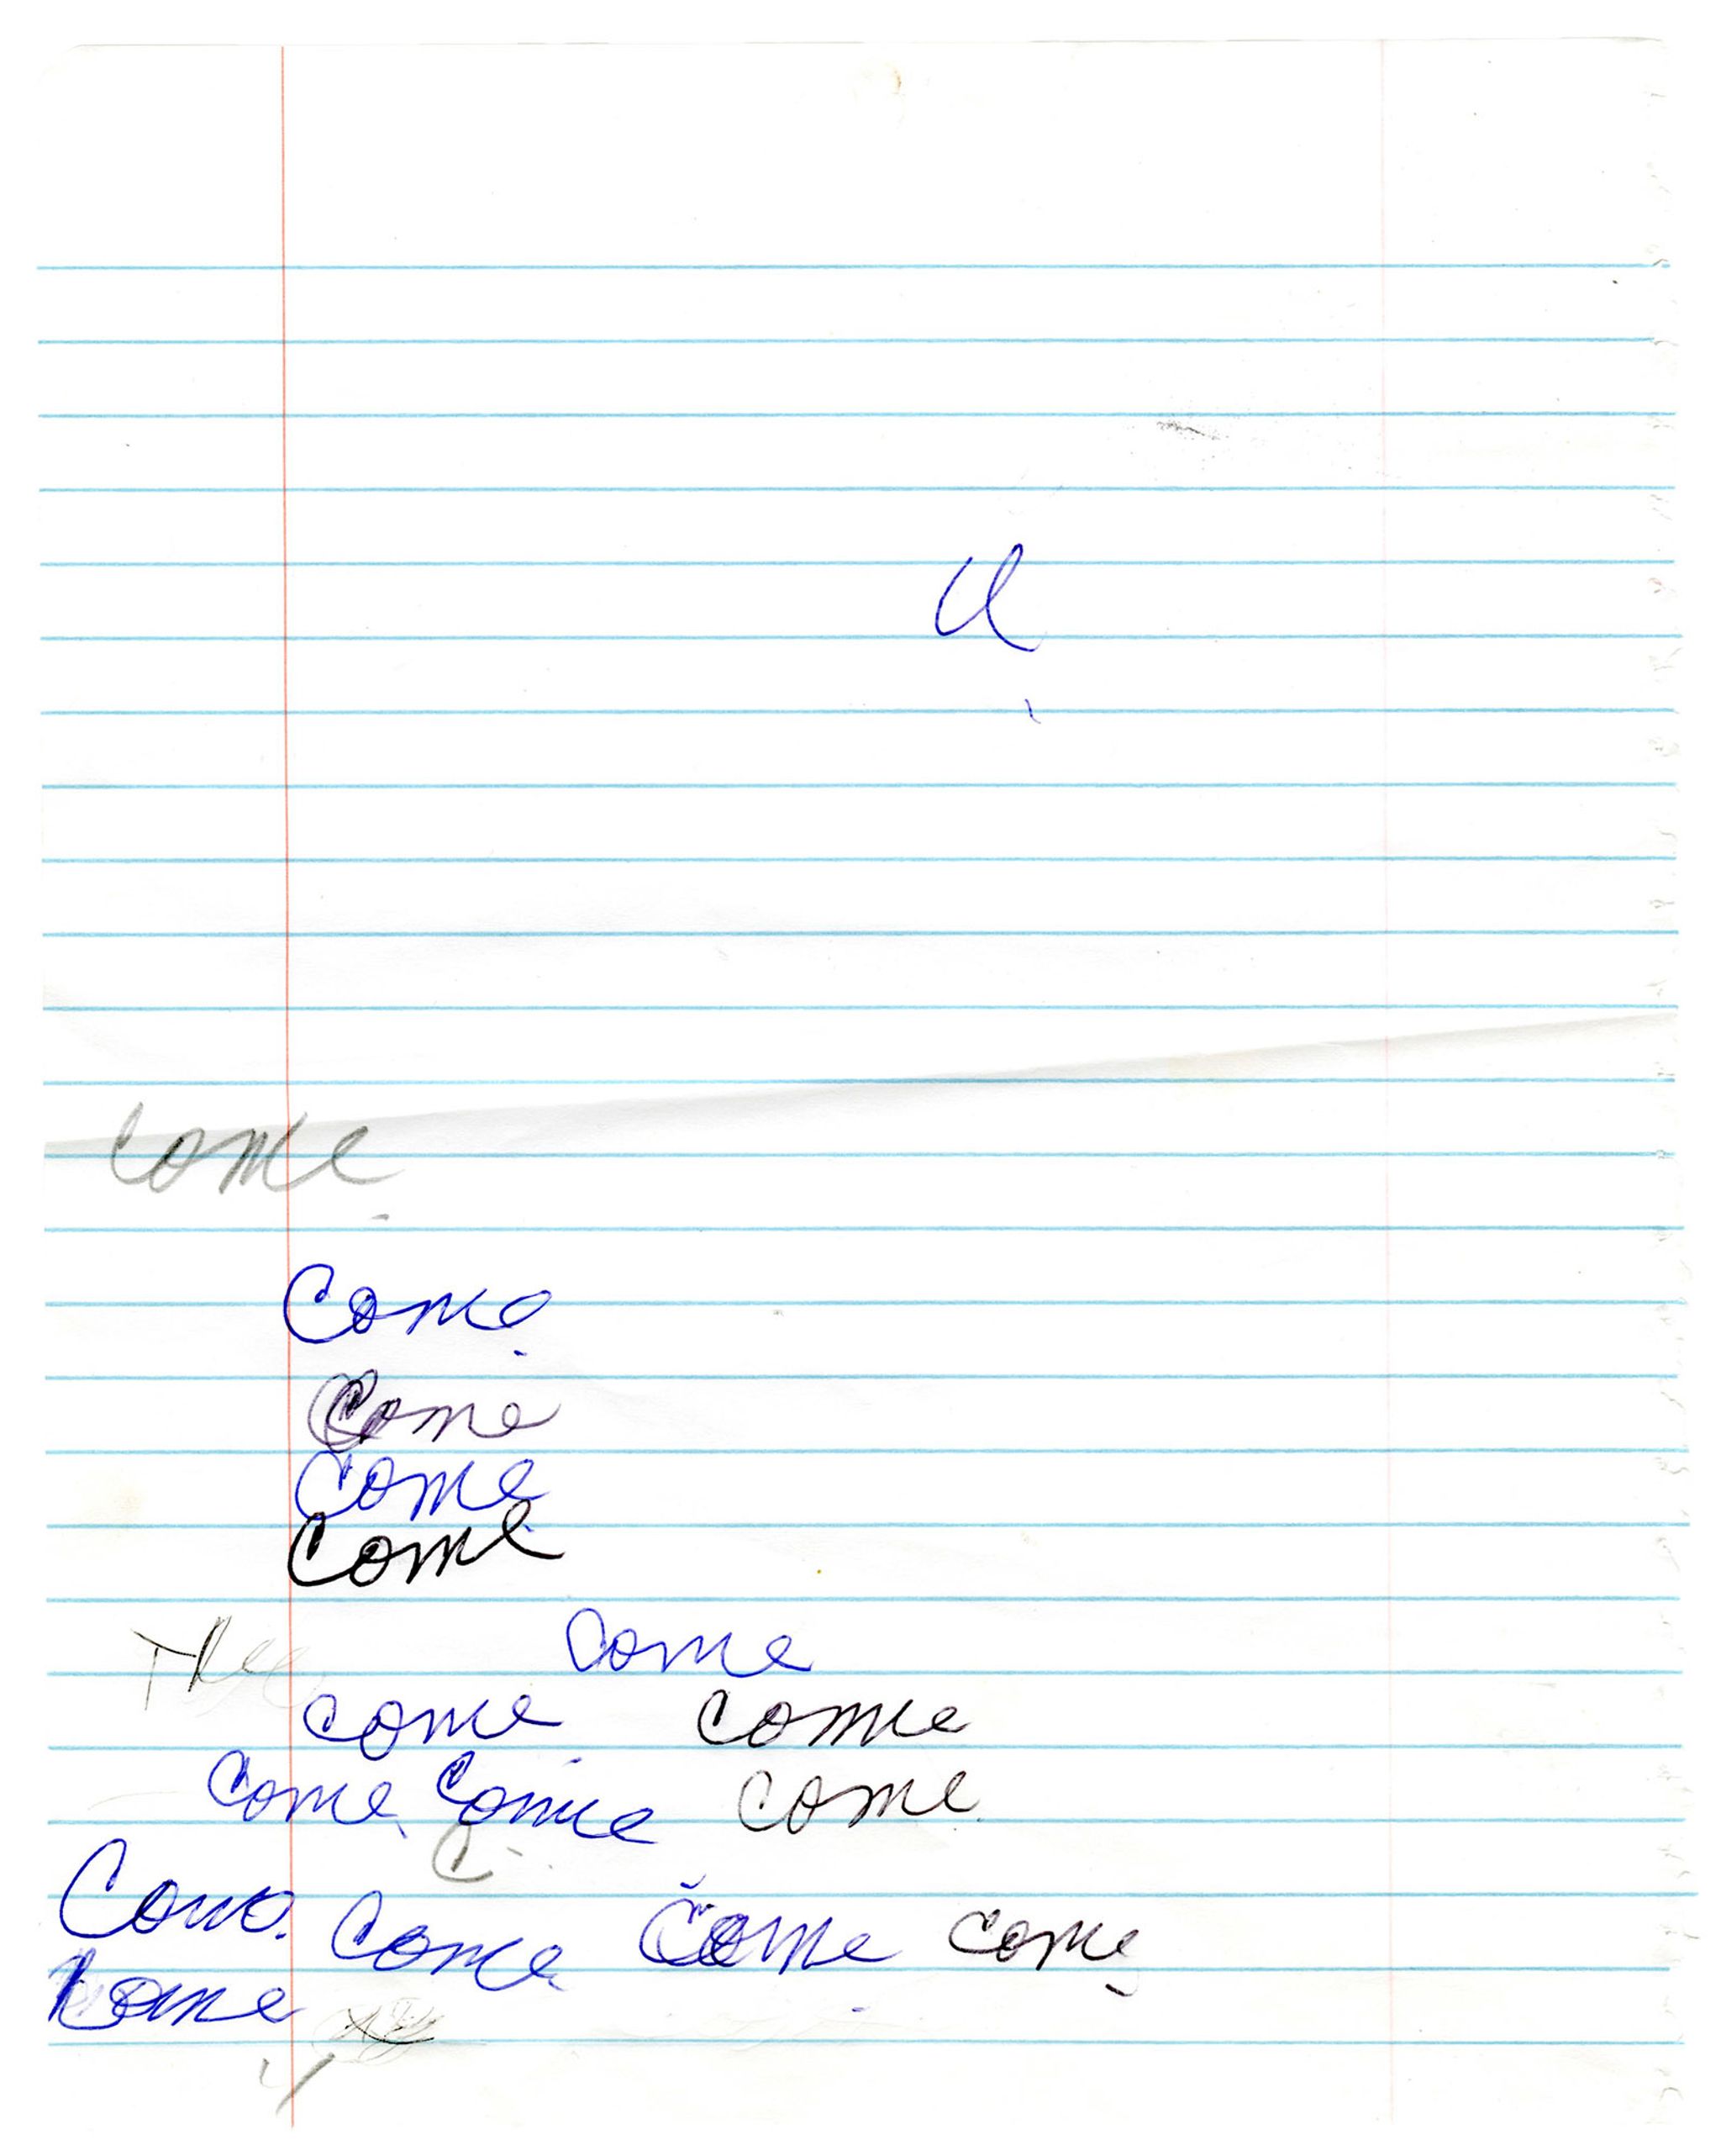 come
Come
Come
Come
Come
The come
come come
come come come
C
Come. Come Come come
Come